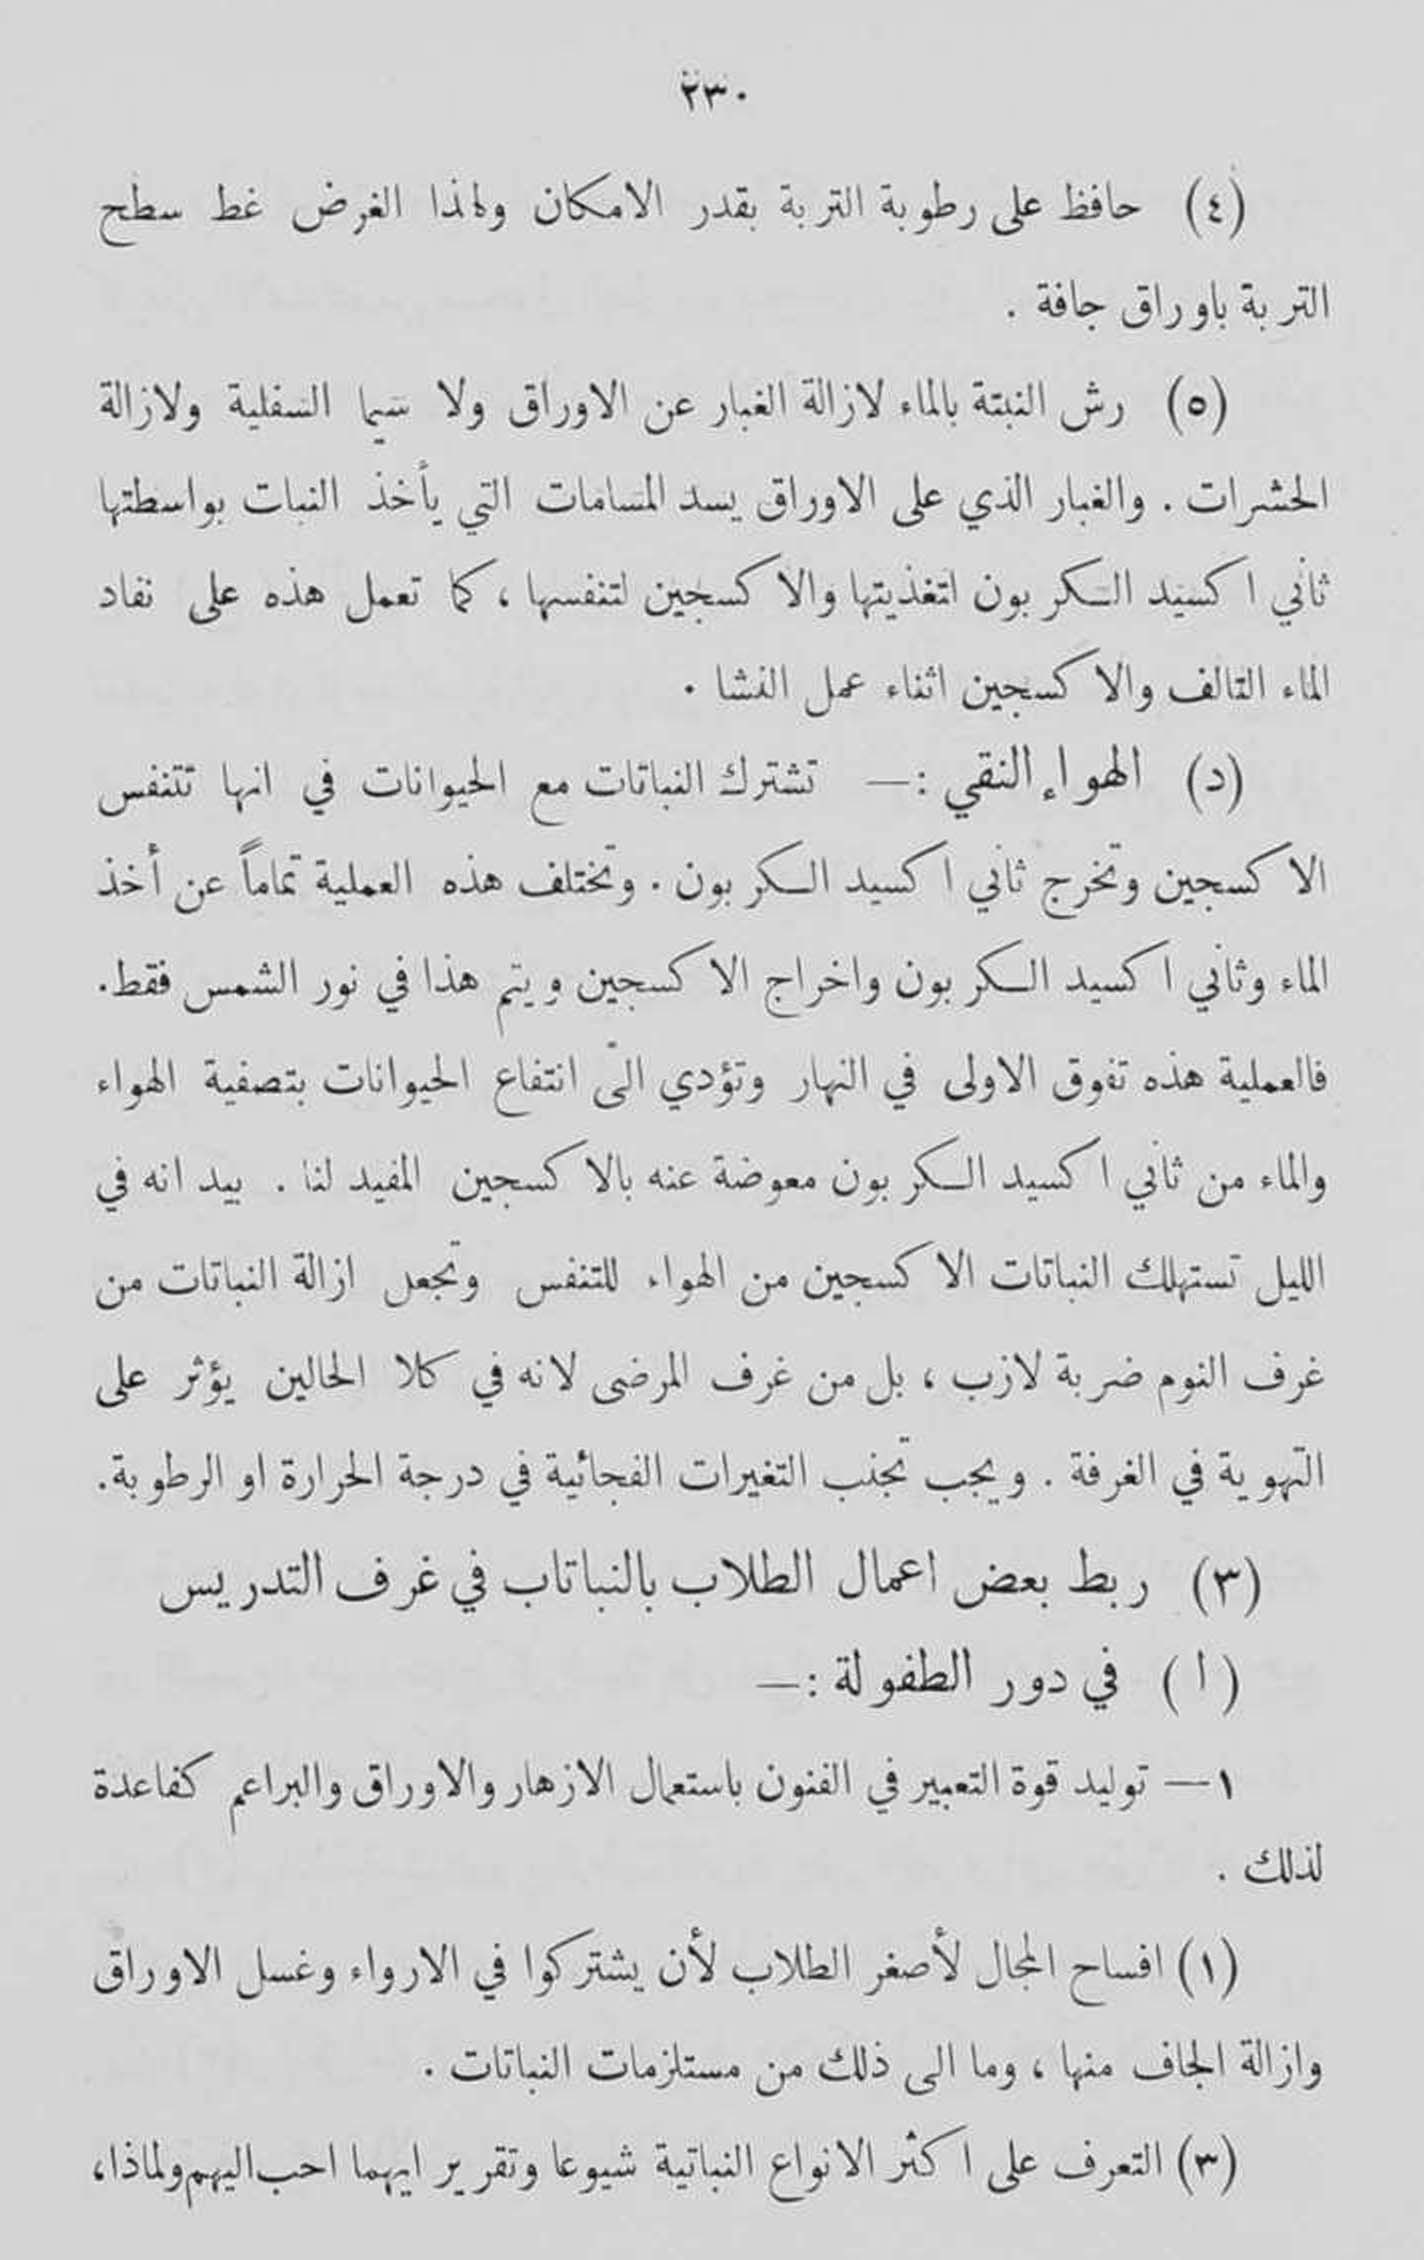 ٢٣٠
(٤) حافظ على رطوبة التربة بقدر الامكان ولهذا الغرض غط سطح
التربة باوراق جافة .
(٥) رش النبتة بالماء لازالة الغبار عن الاوراق ولا سيما السفلية ولازالة
الحشرات . والغبار الذي على الاوراق يسد المسامات التي يأخذ النبات بواسطتها
ثاني اكسيد الكربون لتغذيتها والاكسجين لتنفسها ، كما تعمل هذه على نفاد
الماء التالف والاكسجين اثناء عمل النشا .
(د) الهواء النقي :— تشترك النباتات مع الحيوانات في انها تتنفس
الاكسجين وتخرج ثاني اكسيد الكربون . وتختلف هذه العملية تماماً عن أخذ
الماء وثاني اكسيد الكربون واخراج الاكسجين ويتم هذا في نور الشمس فقط.
فالعملية هذه تفوق الاولى في النهار وتؤدي الى انتفاع الحيوانات بتصفية الهواء
والماء من ثاني اكسيد الكربون معوضة عنه بالاكسجين المفيد لنا . بيد انه في
الليل تستهلك النباتات الاكسجين من الهواء للتنفس وتجعل ازالة النباتات من
غرف النوم ضربة لازب ، بل من غرف المرضى لانه في كلا الحالين يؤثر على
التهوية في الغرفة . ويجب تجنب التغيرات الفجائية في درجة الحرارة او الرطوبة.
(٣) ربط بعض اعمال الطلاب بالنباتاب في غرف التدريس
(ا) في دور الطفولة :—
١— توليد قوة التعبير في الفنون باستعمال الازهار والاوراق والبراعم كفاعدة
لذلك .
(١) افساح المجال لأصغر الطلاب لأن يشتركوا في الارواء وغسل الاوراق
وازالة الجاف منها ، وما الى ذلك من مستلزمات النباتات .
(٣) التعرف على اكثر الانواع النباتية شيوعا وتقرير ايهما احب اليهم ولماذا،